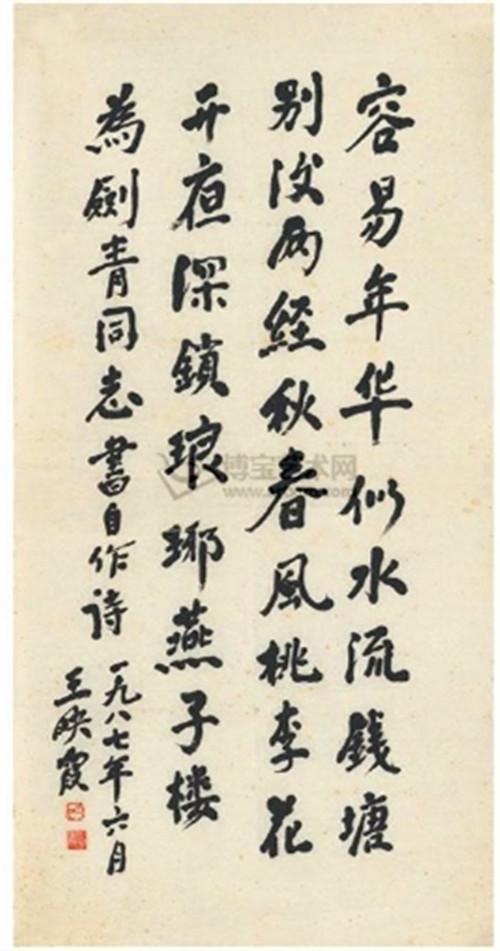 容易年华似水流錢塘
别後两經秋春風桃李花
开夜深鎖琅琊燕子楼
為劍青同志書自作詩
一九八七年六月
王映霞
博宝艺术网